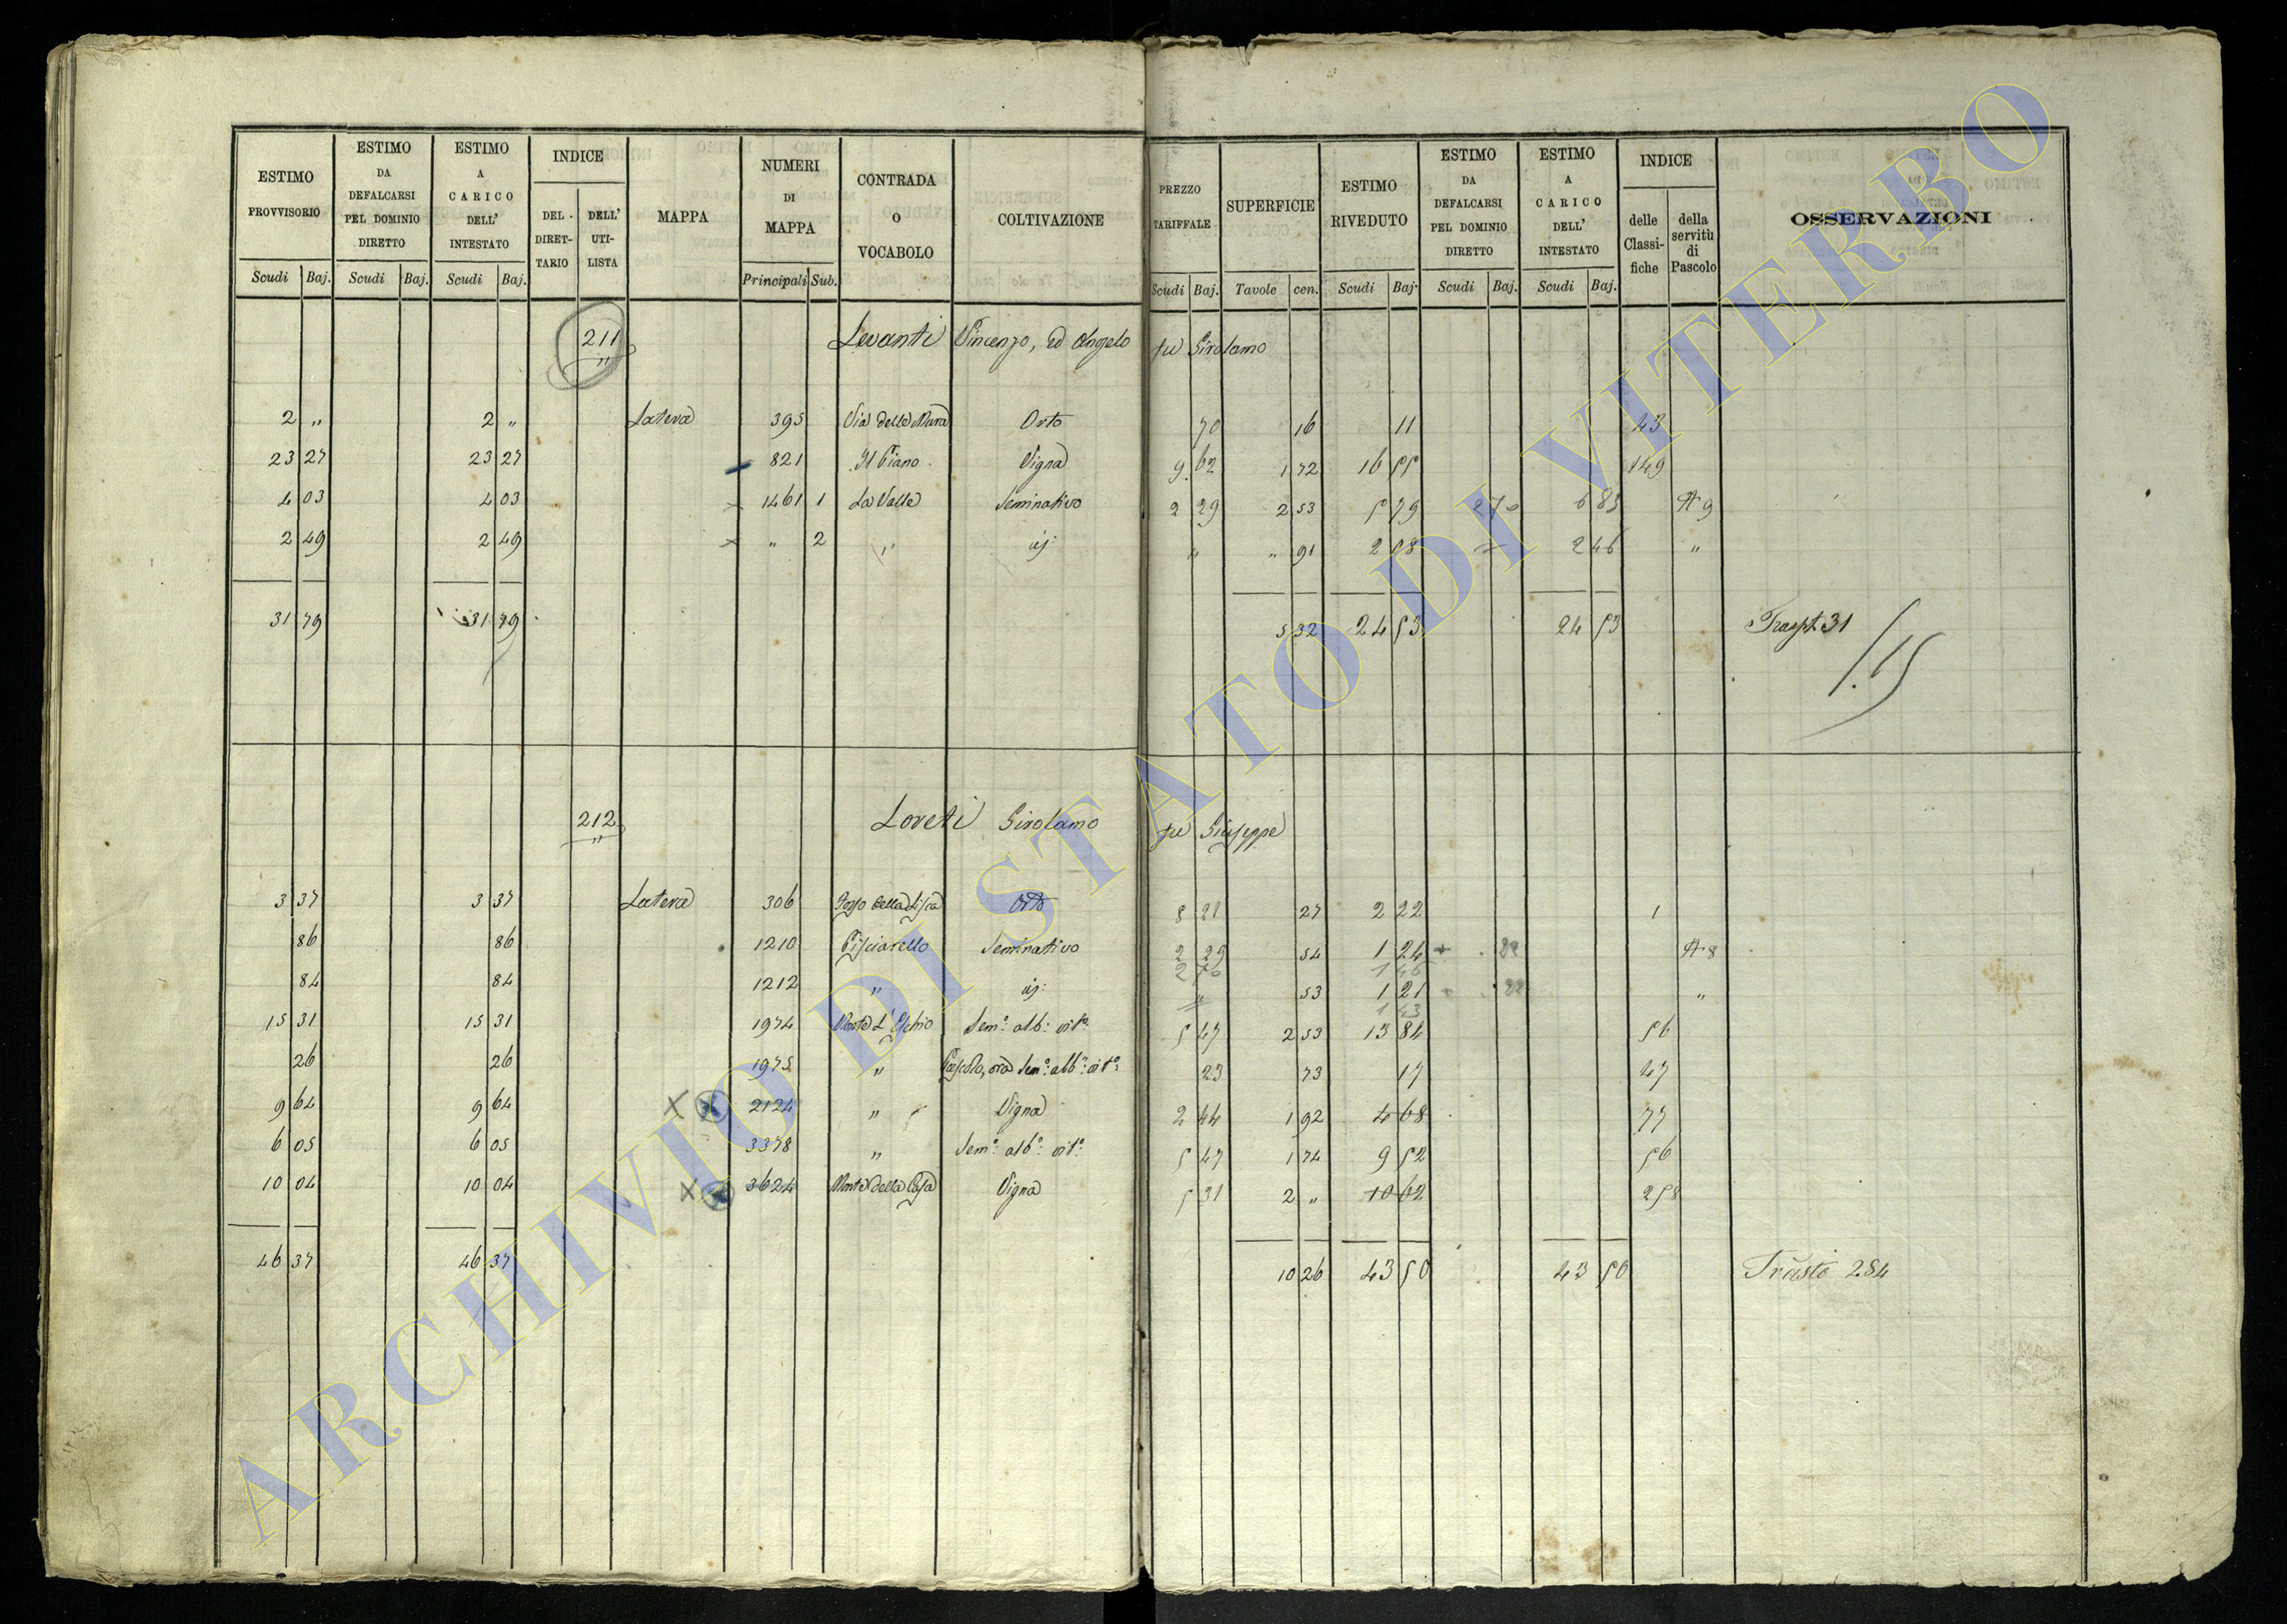 ESTIMO PROVVISORIO | ESTIMO DA DEFALCARSI PEL DOMINIO DIRETTO | ESTIMO A CARICO DELL' INTESTATO | INDICE | MAPPA | NUMERI DI MAPPA | CONTRADA O VOCABOLO | COLTIVAZIONE | PREZZO TARIFFALE | SUPERFICIE | ESTIMO RIVEDUTO | ESTIMO DA DEFALCARSI PEL DOMINIO DIRETTO | ESTIMO A CARICO DELL' INTESTATO | INDICE | OSSERVAZIONI
DEL DIRETTARIO | DELL' UTILISTA | delle Classifiche | della servitù di Pascolo
Scudi Baj. | Scudi Baj. | Scudi Baj. | Principali Sub. | Scudi Baj. | Tavole cen. | Scudi Baj. | Scudi Baj. | Scudi Baj.
211 " Levanti Vincenzo, ed Angelo fu Girolamo
2 " 2 " Latera 393 Via delle Mura Orto 70 16 11 43
23 27 23 27 821 Il Piano Vigna 9 62 1 72 16 55 149
4 03 4 03 x 1461 1 La Valle Seminativo 2 29 2 53 5 79 2 70 6 83 A 9
2 49 2 49 x " 2 " id: " " 91 2 08 2 46 "
31 79 31 79 5 32 24 53 24 53 Trasp. 31
15
212 " Loreti Girolamo fu Giuseppe
3 37 3 37 Latera 306 Orto 8 21 27 2 22 1
86 86 1210 Pisciarello Seminativo 2 29 54 1 24 22 A 8
2 70 1 46
84 84 1212 " id: " 53 1 21 22 "
1 43
15 31 15 31 1974 Sem.º alb: vit.º 5 47 2 53 13 84 56
26 26 1975 " Pascolo, ora Sem.º alb.º vit.º 23 73 17 47
9 64 9 64 X X 2124 " Vigna 2 44 1 92 4 68 77
6 05 6 05 3378 " Sem.º alb.º vit.º 5 47 1 74 9 52 56
10 04 10 04 X 3624 Monte della Casa Vigna 5 31 2 " 10 62 258
46 37 46 37 10 26 43 50 43 50 Trasto 284
ARCHIVIO DI STATO DI VITERBO